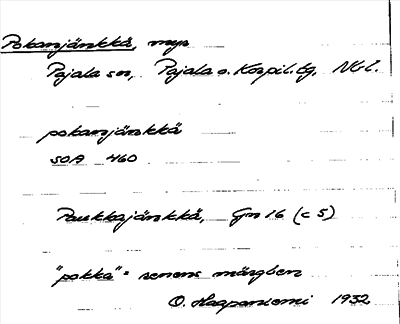 Pokanjänkkä, myr
Pajala sn, Pajala o. Korpil. tg, Nb l.
pokanjänkkä
SOA 460
Paukkajänkkä, Gn 16 (c 5)
"pokka" = renens märgben
O. Haapaniemi 1932